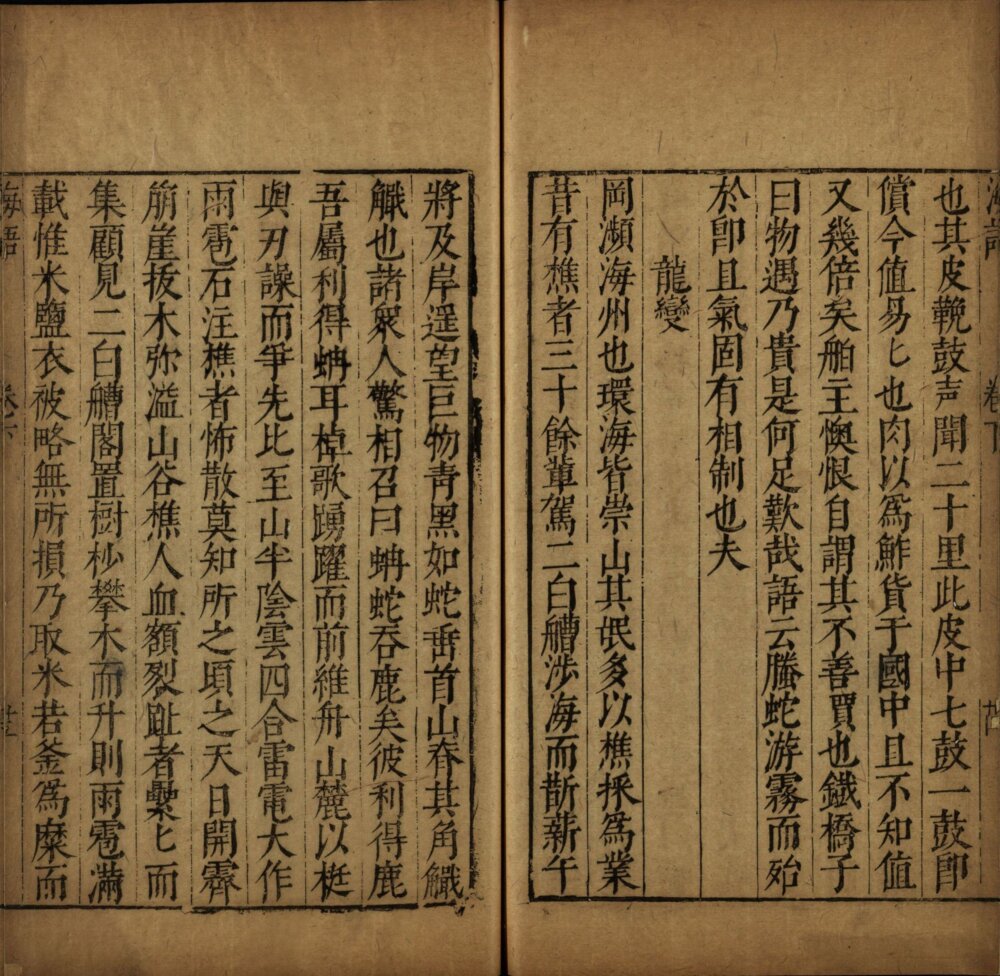 也其皮鞔鼓声聞二十里此皮中七鼓一鼓即
償今值易匕也肉以為鮓貨于國中且不知值
又幾倍矣舶主懊恨自謂其不善買也鐵橋子
曰物遇乃貴是何足歎哉語云螣蛇游霧而殆
於即且氣固有相制也夫
龍變
岡瀕海州也環海皆崇山其氓多以樵採為業
昔有樵者三十餘輩駕二白艚涉海而斮薪午
將及岸遥望巨物青黑如蛇垂首山脊其角觿
觿也諸眾人驚相召曰蚺蛇吞鹿矣彼利得鹿
吾屬利得蚺耳棹歌踴躍而前維舟山麓以梃
與刃譟而爭先比至山半陰雲四合雷電大作
雨雹石注樵者怖散莫知所之頃之天日開霽
簜崖拔木弥溢山谷樵人血額裂趾者纍匕而
集顧見二白艚閣置樹杪攀木而升則雨雹滿
載惟米鹽衣被略無所損乃取米若釜為糜而
海語 卷下